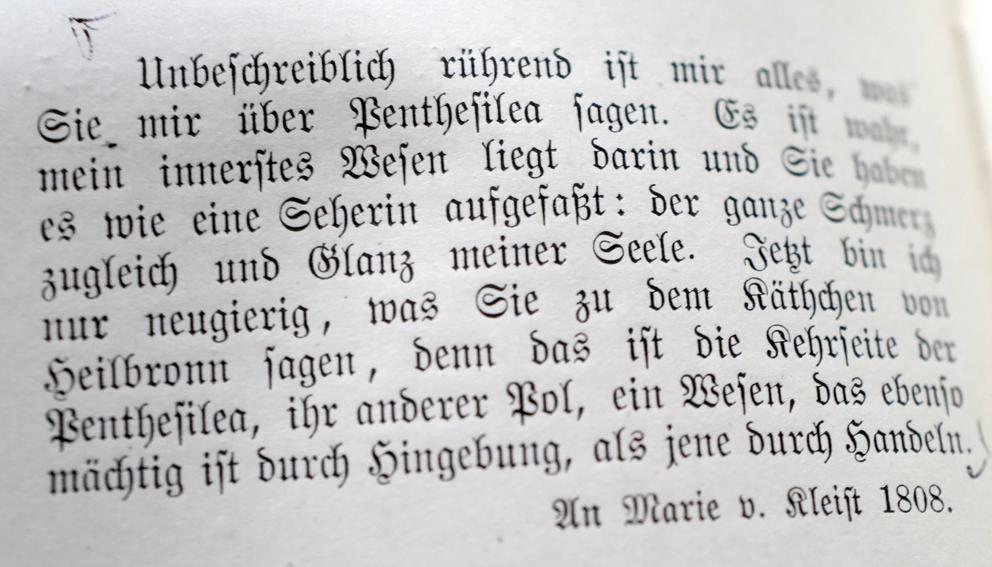 Unbeschreiblich rührend ist mir alles, was
Sie mir über Penthesilea sagen. Es ist wahr,
mein innerstes Wesen liegt darin und Sie haben
es wie eine Seherin aufgefaßt: der ganze Schmerz
zugleich und Glanz meiner Seele. Jetzt bin ich
nur neugierig, was Sie zu dem Käthchen von
Heilbronn sagen, denn das ist die Kehrseite der
Penthesilea, ihr anderer Pol, ein Wesen, das ebenso
mächtig ist durch Hingebung, als jene durch Handeln.
An Marie v. Kleist 1808.